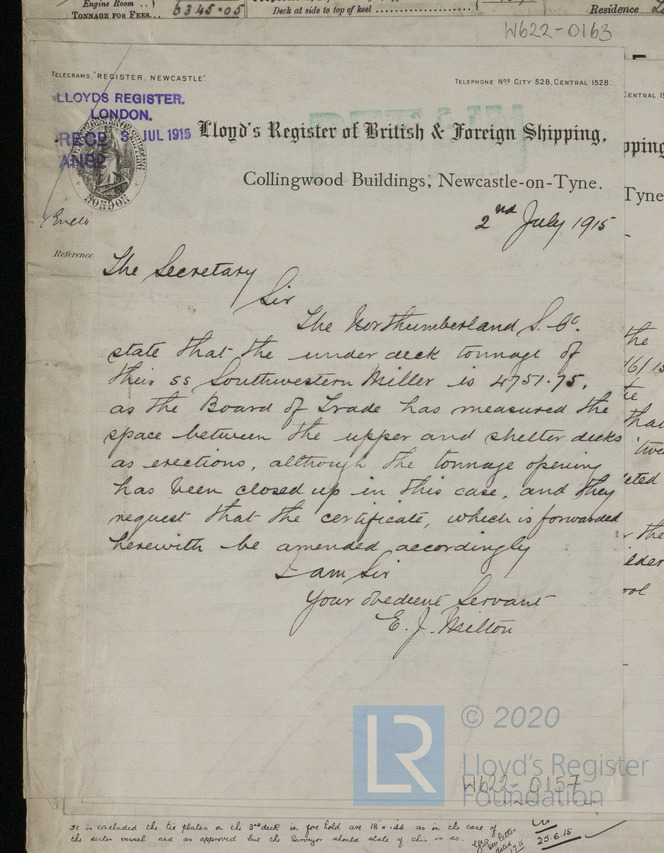 Engine Room ..
TONNAGE FOR FEES...
6345.05
Deck at side to top of keel
Residence
W622-0163
TELEGRAMS, "REGISTER, NEWCASTLE".
TELEPHONE Nos CITY 528, CENTRAL 1528.
LLOYDS REGISTER.
LONDON.
RECD 3 JUL 1915
ANSD
LONDON
Lloyd's Register of British & Foreign Shipping,
Collingwood Buildings, Newcastle-on-Tyne.
2nd July 1915
Enclo
Reference
The Secretary
Sir
The Northumberland S. Co.
state that the under deck tonnage of
their ss Southwestern Miller is 4751.75,
as the Board of Trade has measured the
space between the upper and shelter decks
as erections, although the tonnage opening
has been closed up in this case, and they
request that the certificate, which is forwarded
herewith be amended accordingly
I am Sir
Your obedient Servant
E. J. Milton
LR
© 2020
Lloyd's Register
Foundation
W622-0157
It is concluded the tie plates on the 3rd deck in fore hold are 18 x .44 as in the case of
the sister vessel and as approved but the Surveyor should state if this is so.
25.6.15